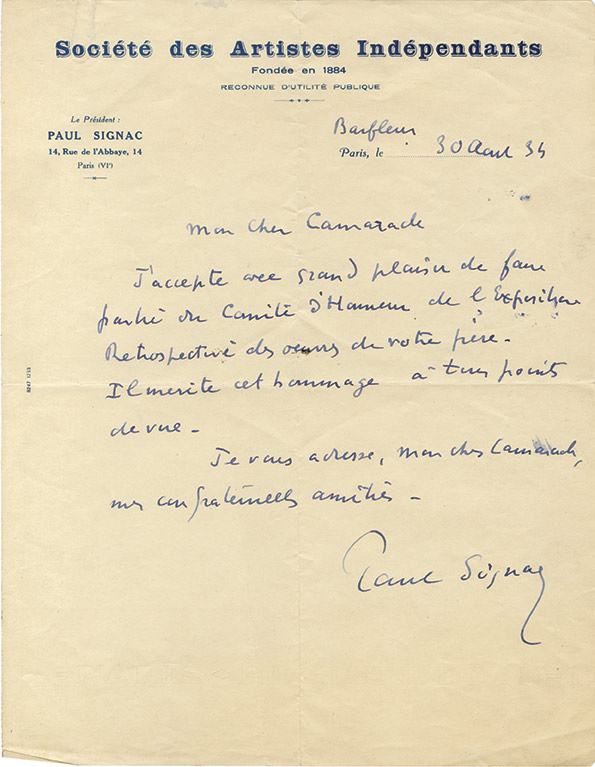 Société des Artistes Indépendants
Fondée en 1884
RECONNUE D'UTILITÉ PUBLIQUE
Le Président :
PAUL SIGNAC
14, Rue de l'Abbaye, 14
Paris (VIe)
Barfleur
Paris, le 30 Aout 34
Mon cher Camarade
J'accepte avec grand plaisir de faire
partie du Comité d'Honneur de l'Exposition
Retrospective des oeuvres de votre père -
Il merite cet hommage à tous points
de vue -
Je vous adresse, mon cher Camarade,
mes confraternelles amitiés -
Paul Signac